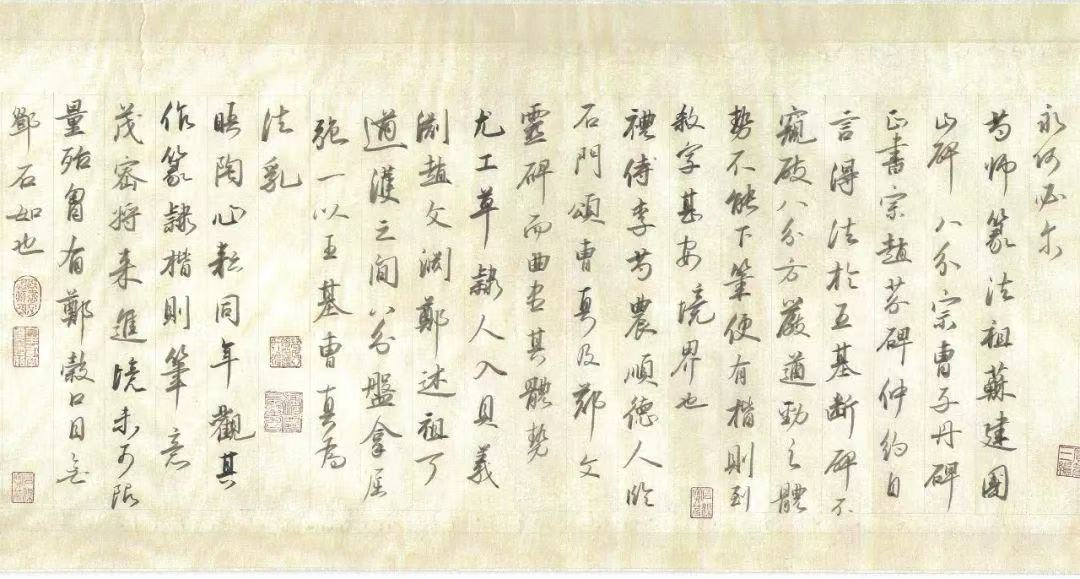 永何必尔
芍师篆法祖苏建国
山碑八分宗曹子丹碑
正書宗趙芬碑仲约自
言得法於王基断碑不
窥破八分方嚴遒勁之體
势不能下筆便有楷則到
敘字甚安境界也
禮侍李芍農順德人臨
石門頌曹真及郑文
靈碑而曲尽其體势
尤工草隸人入具義
渊趙文渊鄭述祖了
道漢之间八分盤拿屈
強一以王基曹真為
法乳
晤陶心耘同年觀其
作篆隸楷則筆意
茂密将来進境未可限
量殆胃有鄭穀口目無
鄧石如也